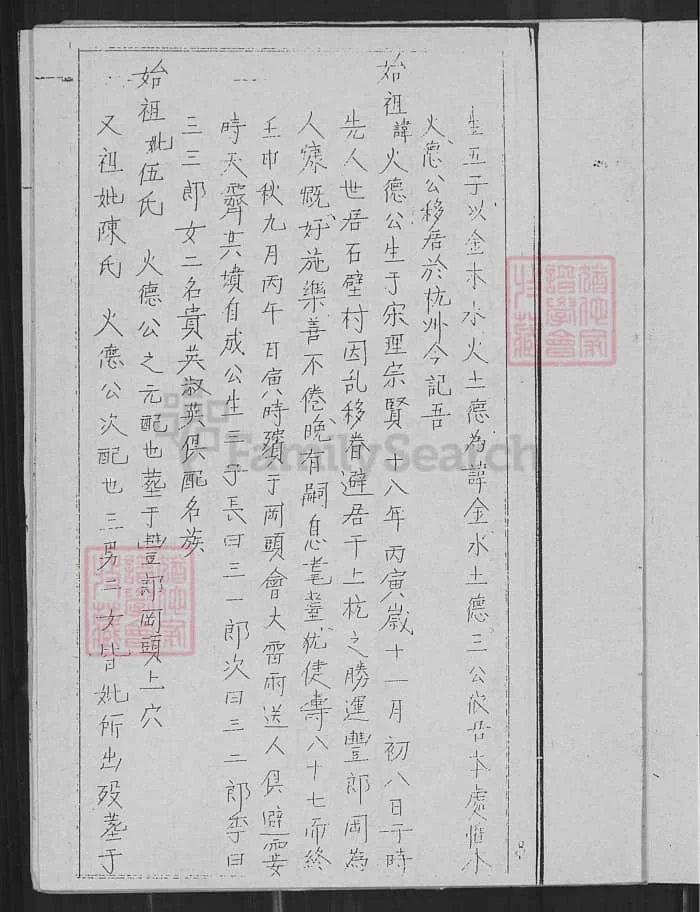 生五子以金木水火土德為諱金水土德三公仍居本處惟木
火德公移居於杭州今記吾
始祖諱火德公生于宋理宗賢 十八年丙寅歲十一月初八日子時
先人世居石壁村因乱移眷避居于上杭之勝運豐郎岡為
人慷慨好施樂善不倦晚有嗣息耄耋犹健壽八十七而終
壬申秋九月丙午日寅時殯于岡頭會大雷雨送人俱避霎
時天霽其墳自成公生三子長曰三一郎次曰三二郎季曰
三三郎女二名貴英淑英俱配名族
始祖妣伍氏 火德公之元配也塟于豐郎岡頭上穴
又祖妣陳氏 火德公次配也三男二女皆妣所出歿塟于
FamilySearch